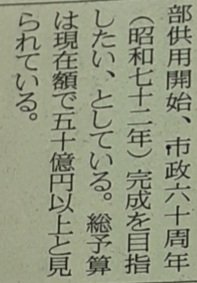 部供用開始、市政六十周年
（昭和七十二年）完成を目指
したい、としている。総予算
は現在額で五十億円以上と見
られている。